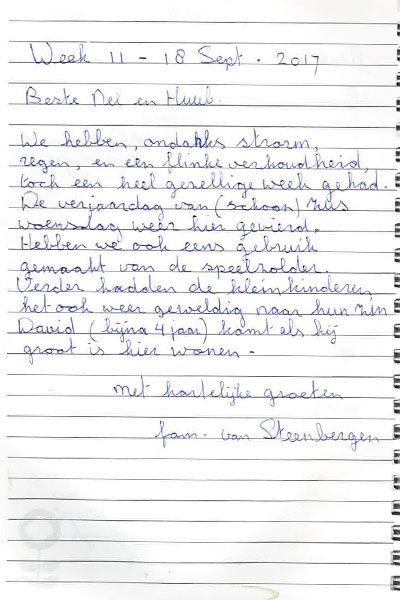 Week 11 - 18 Sept. 2017
Beste Nel en Huub.
We hebben, ondanks storm,
regen, en een flinke verkoudheid,
toch een heel gezellige week gehad.
De verjaardag van (schoon) zus
woensdag weer hier gevierd.
Hebben we ook eens gebruik
gemaakt van de speelzolder.
Verder hadden de kleinkinderen
het ook weer geweldig naar hun zin
David (bijna 4 jaar) komt als hij
groot is hier wonen -
met hartelijke groeten
fam. van Steenbergen